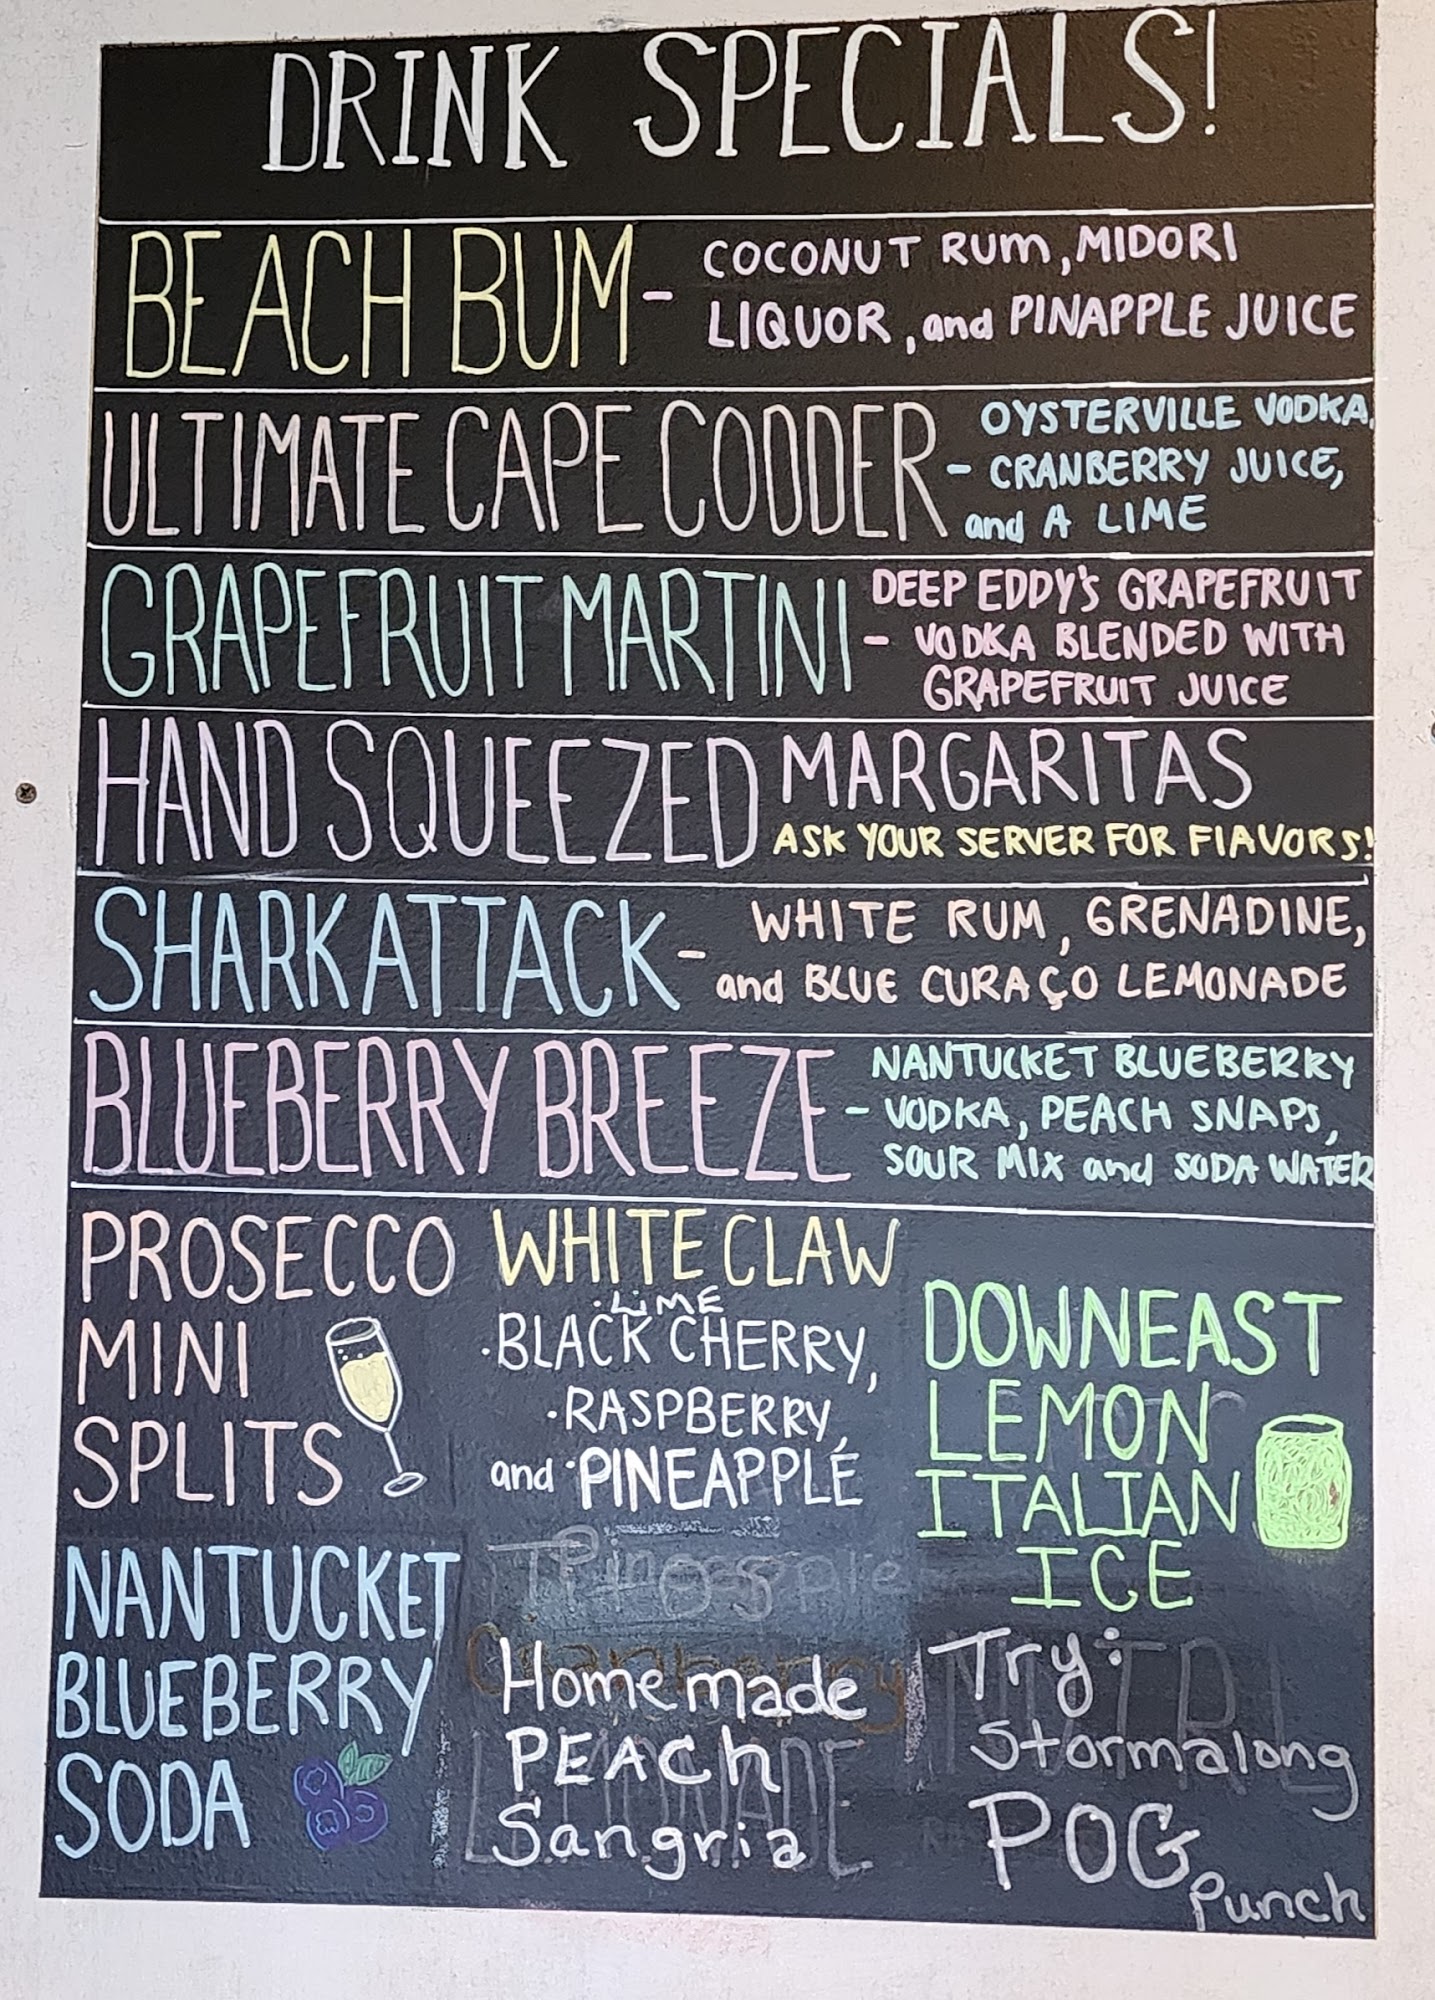 DRINK SPECIALS!
BEACH BUM - COCONUT RUM, MIDORI
LIQUOR, and PINAPPLE JUICE
ULTIMATE CAPE CODDER - OYSTERVILLE VODKA,
CRANBERRY JUICE,
and A LIME
GRAPEFRUIT MARTINI - DEEP EDDY'S GRAPEFRUIT
VODKA BLENDED WITH
GRAPEFRUIT JUICE
HAND SQUEEZED MARGARITAS
ASK YOUR SERVER FOR FLAVORS!
SHARK ATTACK - WHITE RUM, GRENADINE,
and BLUE CURAÇO LEMONADE
BLUEBERRY BREEZE - NANTUCKET BLUEBERRY
VODKA, PEACH SNAPS,
SOUR MIX and SODA WATER
PROSECCO
MINI
SPLITS
WHITE CLAW
·LIME
·BLACK CHERRY,
·RASPBERRY,
and ·PINEAPPLE
DOWNEAST
LEMON
ITALIAN
ICE
NANTUCKET
BLUEBERRY
SODA
Homemade
PEACh
Sangria
Try:
Stormalong
POG
Punch